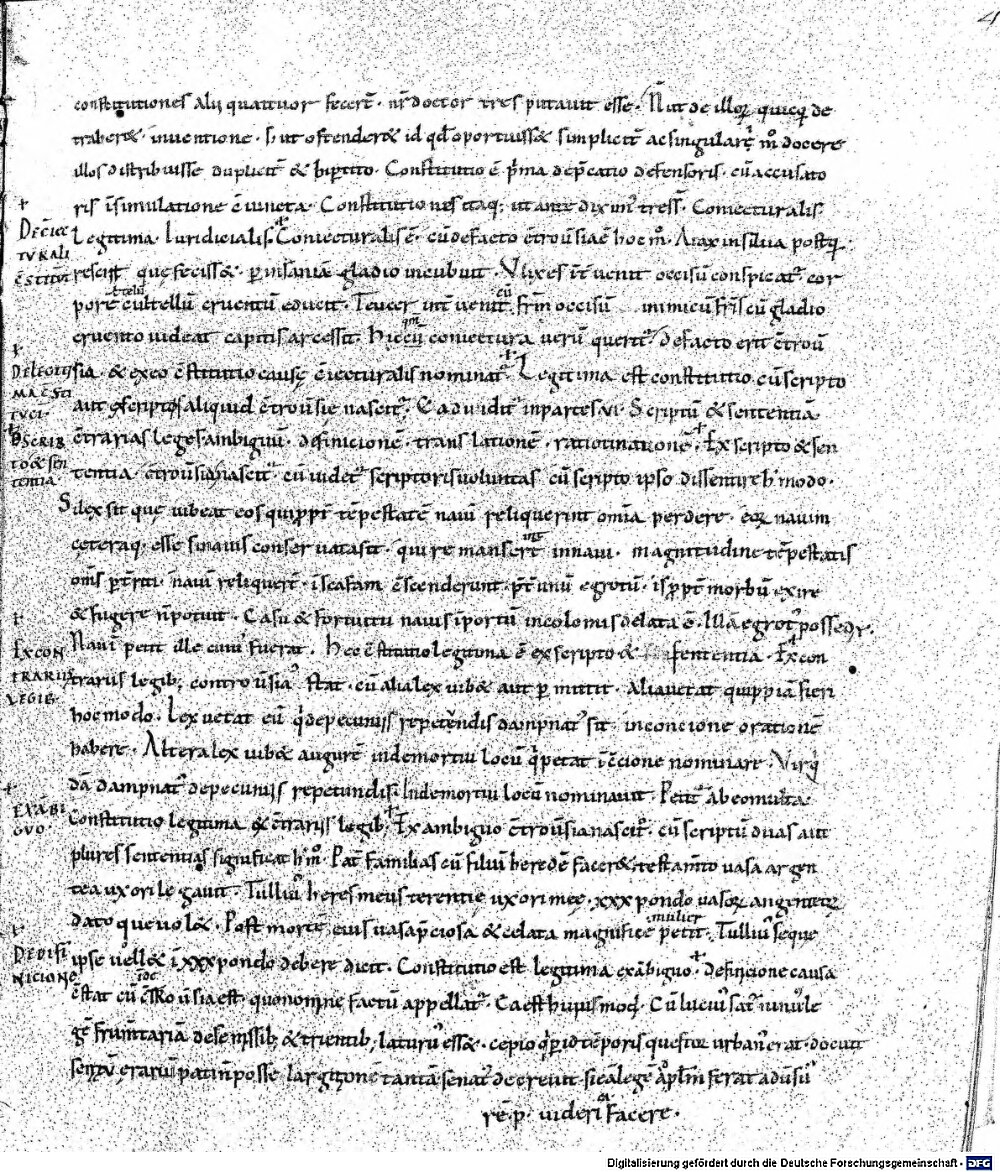 4
constitutiones alij quattuor fecer̄. nr̄ doctor tres putauit esse. N̄ ut de illoꝝ quicq̄ de
traher& inuentione. S; ut ostender& id qd̄ oportuiss& simplicit̄ ac singularit̄ m̄ docere
illos distribuisse duplicit̄ & bipertito. Constitutio ē p̄ma dep̄catio defensoris. cū accusato
ris īsimulatione c̄iuncta. Constitutiones itaq; ut ante dixim᷒ tres s̄. Coniecturalis.
Legitima. Iuridicialis. Coniecturalis ē. cū de facto c̄trouersia ē hoc m̄. Aiax in silua postq̄
resciit que fecisset. p̄ insaniā gladio incubuit. Vlixes int̄uenit occisū conspicat᷒ cor
pore telū cultellū cruentū educit. Teucer int̄uenit frēm occisū inimicū fr̄is cū gladio
cruento uideat capitis arcessit. Hic cū coniectura uerū querit᷒ de facto erit c̄trou
sia. & ex eo c̄stitutio causę c̄iecturalis nominat᷒. Legitima est constitutio cū scripto
aut e scripto aliquid c̄trouersie nascit᷒. Ea diuidit᷒ in partes VI. Scriptū & sententiā
c̄trarias leges ambiguū. definicionē. translationē. ratiotinationē. Ex scripto & sen
tentia. c̄trouersia nascit᷒. cū uidet᷒ scriptoris uoluntas cū scripto ipso dissentire h̄ modo.
Si lex sit que iubeat eos qui ppt̄ tēpestatē nauī reliquerint omīa perdere. eoꝝ nauim
ceteraq; esse si nauis conseruata sit. qui remanserint in naui. magnitudine tēpestatis
om̄s pt̄riti. nauī reliquer̄. ī scafam c̄scenderunt. pt̄ unū egrotū. is ppt̄ morbū exire
& fugere n̄ potuit. Casu & fortuitu nauis ī portū incolomis delata ē. Illā egrot᷒ possedr̄.
Nauī petit ille cuius fuerat. Hec c̄stitutio legitima ē ex scripto & sententia. Ex con
trariis legib; controuersia stat. cū alia lex iub& aut p̄mittit. Alia uetat quippiā fieri
hoc modo. Lex uetat eū q̄ de pecuniis repetundis dampnat᷒ sit in concione orationē
habere. Altera lex iub& augurē in demortui locū q̄ petat ī c̄cione nominare. Augur q̄
dā dampnat᷒ de pecuniis repetundis. In demortui locū nominauit. Petit᷒ ab eo multa.
Constitutio legitima ex c̄trariis legib; Ex ambiguo c̄trouersia nascit᷒. cū scriptū duas aut
plures sententias significat h̄ m̄. Pat̄ familias cū filiū heredē facer& testam̄to uasa argen
tea uxori legauit. Tullius heres meus terentie uxori meę. xxx pondo uasoꝝ argenteoꝝ
dato que uol&. Post mortē eius uasa p̄ciosa & celata magnifice mulier petit. Tullius se que
ipse uell& ī xxx pondo debere dicit. Constitutio est legitima ex ābiguo. Definicione causa
c̄stat cū c̄trouersia est. quo nomine factū appellat᷒. Ea est huiusmodi. Cū lucius sat᷒ninus le
gē frum̄tariā de semissib; & trientib; latur᷒ ess&. cepio q̄ p̄ id tēporis questor urban᷒ erat. docuit
senatū ęrariū pati n̄ posse largitionē tantā senat᷒ decreuit. si eā legē ad pl̄m ferat aduersū
rē.p. uideri eā facere.
DE C̄IEC
TVRALI
C̄STITVT
DE LEGITI
MA C̄STI
TVCI
D̄ SCRIP
TO & SEN
TENTIA
EX CON
TRARIIS
LEGIB;
EX ABI
GVO.
DE DIFI
NICIONE
Digitalisierung gefördert durch die Deutsche Forschungsgemeinschaft - DFG